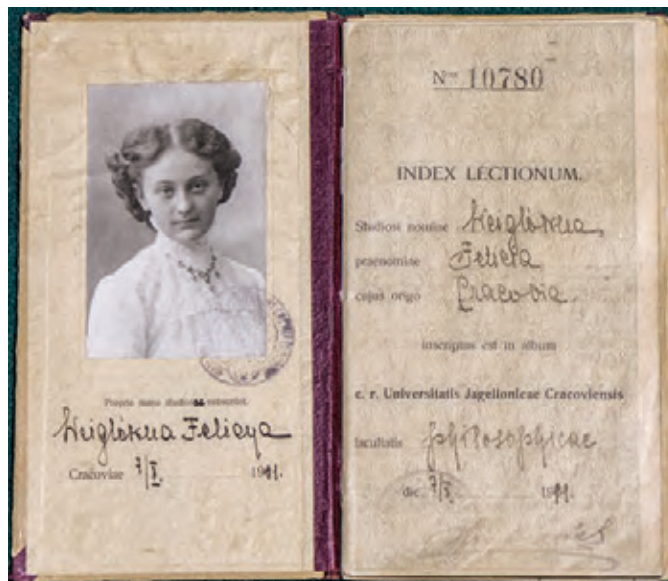 Propria manu studiosi subscriptio.
Weiglówna Felicya
Cracoviae 7/X. 1911.
Nrus 10780
INDEX LECTIONUM.
Studiosi nomine Weiglówna,
praenomine Felicia
cujus origo Cracovia
inscriptus est in album
c. r. Universitatis Jagellonicae Cracoviensis
facultatis philosophicae
die 7/X 1911.